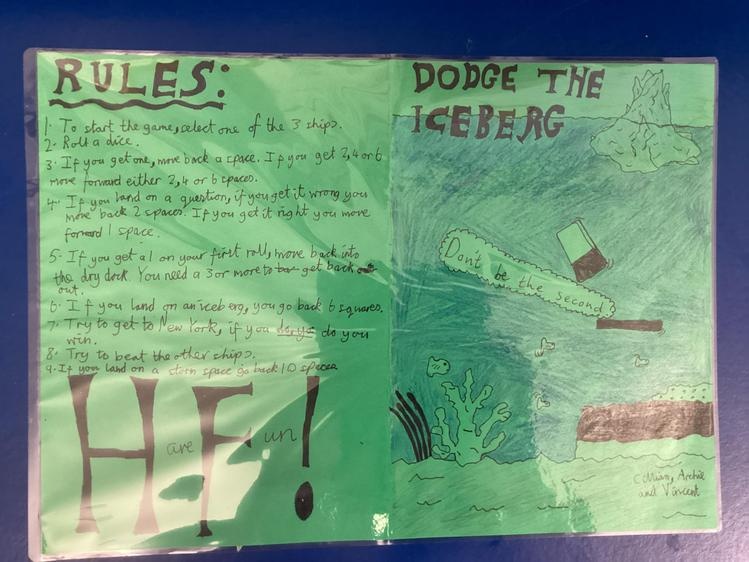 RULES:
1. To start the game, select one of the 3 ships.
2. Roll a dice.
3. If you get one, move back a space. If you get 2, 4 or 6
move forward either 2, 4 or 6 spaces.
4. If you land on a question, if you get it wrong you
move back 2 spaces. If you get it right you move
forward 1 space.
5. If you get a 1 on your first roll, move back into
the dry dock. You need a 3 or more to get back
out.
6. If you land on an iceberg, you go back 6 squares.
7. Try to get to New York, if you do you
win.
8. Try to beat the other ships.
9. If you land on a storm space go back 10 spaces
Have Fun!
DODGE THE
ICEBERG
Dont be the second
Archie
and Vincent